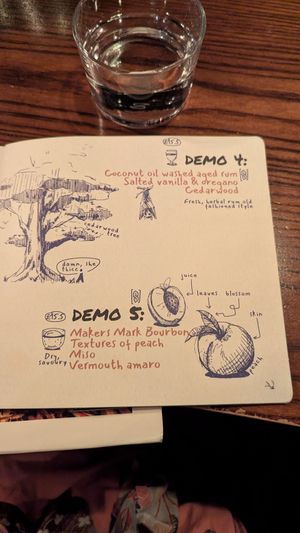 £15.5
DEMO 4:
Coconut oil washed aged rum
Salted vanilla & oregano
Cedarwood
Fresh, herbal rum old
fashioned style
cedarwood
tree
damn, she
thicc
juice
leaves
blossom
skin
peach
£15.5
DEMO 5:
Makers Mark Bourbon
Textures of peach
Miso
Vermouth amaro
Dry,
savoury